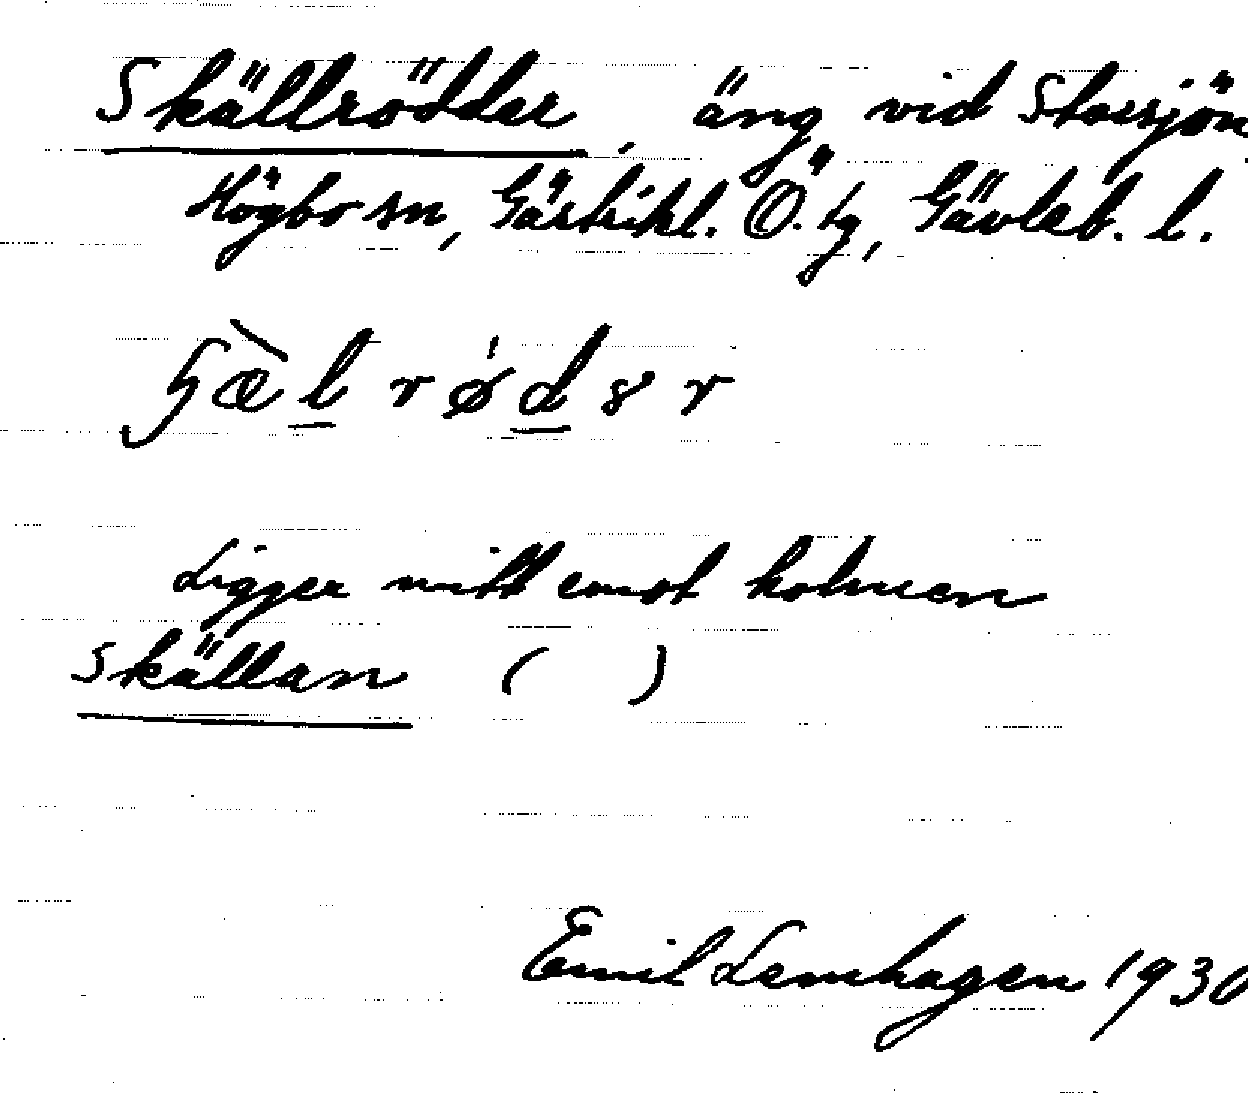 Skällrödder, äng vid Storsjön
Högbo sn, Gästrikl. Ö. tg, Gävleb. l.
Ligger mitt emot holmen
Skällan ( )
Emil Lemhagen 1930